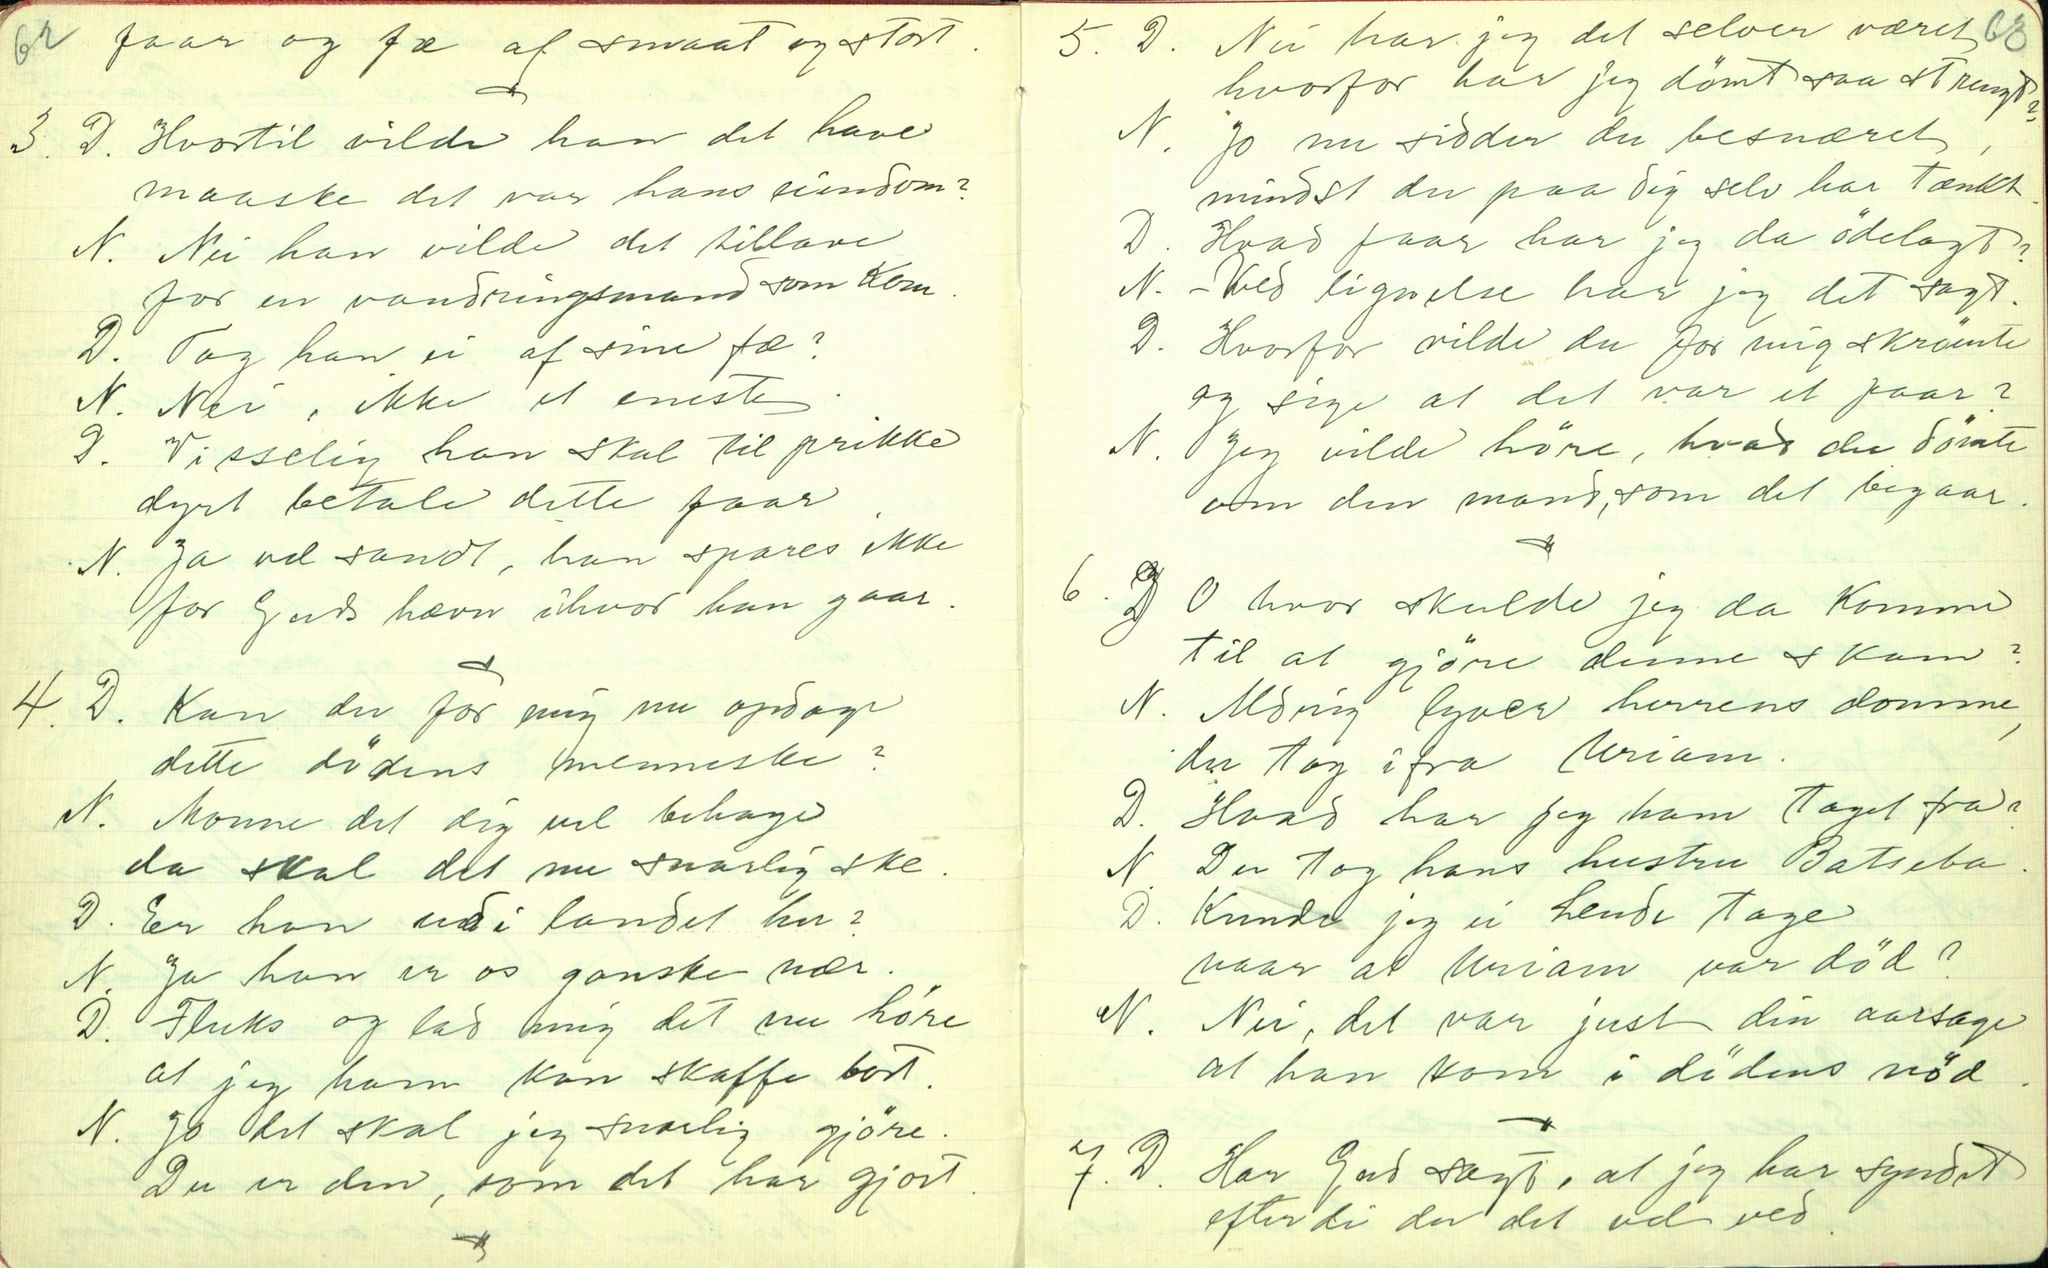 62
faar og fæ af smaat og stort.
3. D. Hvortil vilde han det have
maaske det var hans eiendom?
N. Nei han vilde det tillave
for en vandringsmand som kom.
D. Tog han ei af sine fæ?
N. Nei, ikke et eneste.
D. Visselig han skal til prikke
dyrt betale dette faar.
N. Ja vel sandt, han spares ikke
for Guds hævn ihvor han gaar.
4. D. Kan du for mig nu opdage
dette dödens menneske?
N. Monne det dig vel behage
da skal det nu snarlig ske.
D. Er han udi landet her?
N. Ja han er os ganske nær.
D. Fluks og lad mig det nu höre
at jeg ham kan skaffe bort.
N. Jo det skal jeg snarlig gjöre.
Du er den, som det har gjort.
63
5. D. Nu har jeg det selver været
hvorfor har jeg dömt saa strengt?
N. Jo nu sidder du besnæret,
mindst du paa dig selv har tænkt.
D. Hvad faar har jeg da ödelagt?
N. - Ved lignelse har jeg det sagt.
D. Hvorfor vilde du for mig skrömte
og sige at det var et faar?
N. Jeg vilde höre, hvad du dömte
om den mand, som det begaar.
6. D O hvor skulde jeg da komme
til at gjöre denne skam?
N. Aldrig lyver herrens domme,
du tog ifra Uriam.
D. Hvad har jeg ham taget fra?
N. Du tog hans hustru Batseba.
D. Kunde jeg ei hende tage
naar at Uriam var död?
N. Nei, det var just din aarsage
at han kom i dödens nöd.
7. D. Har Gud sagt, at jeg har syndet
efterdi du det vel ved.